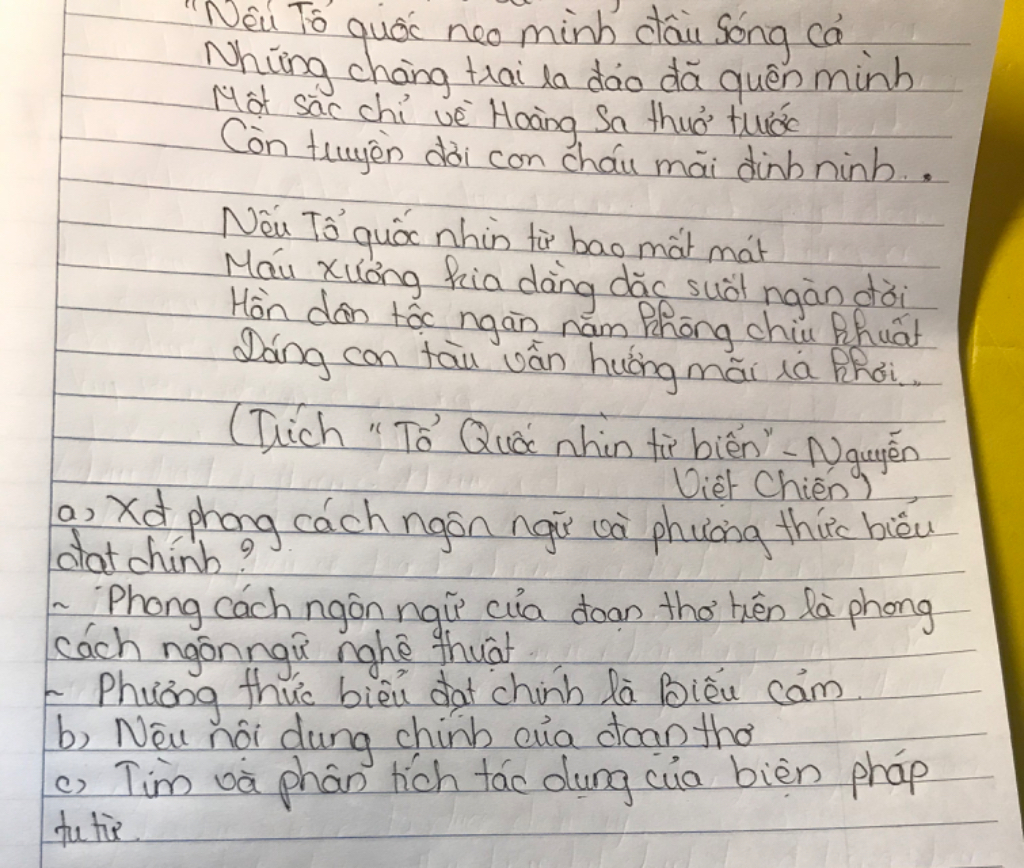 "Nếu Tổ quốc neo mình đầu sóng cả
Những chàng trai ra đảo đã quên mình
Một sắc chỉ về Hoàng Sa thuở trước
Còn truyền đời con cháu mãi đinh ninh...
Nếu Tổ quốc nhìn từ bao mất mát
Máu xương kia dằng dặc suốt ngàn đời
Hồn dân tộc ngàn năm không chịu khuất
Dáng con tàu vẫn hướng mãi ra khơi...
(Trích "Tổ Quốc nhìn từ biển" - Nguyễn
Việt Chiến)
a, Xđ phong cách ngôn ngữ và phương thức biểu
đạt chính?
- Phong cách ngôn ngữ của đoạn thơ trên là phong
cách ngôn ngữ nghệ thuật
- Phương thức biểu đạt chính là Biểu cảm
b, Nêu nội dung chính của đoạn thơ
c, Tìm và phân tích tác dụng của biện pháp
tu từ.